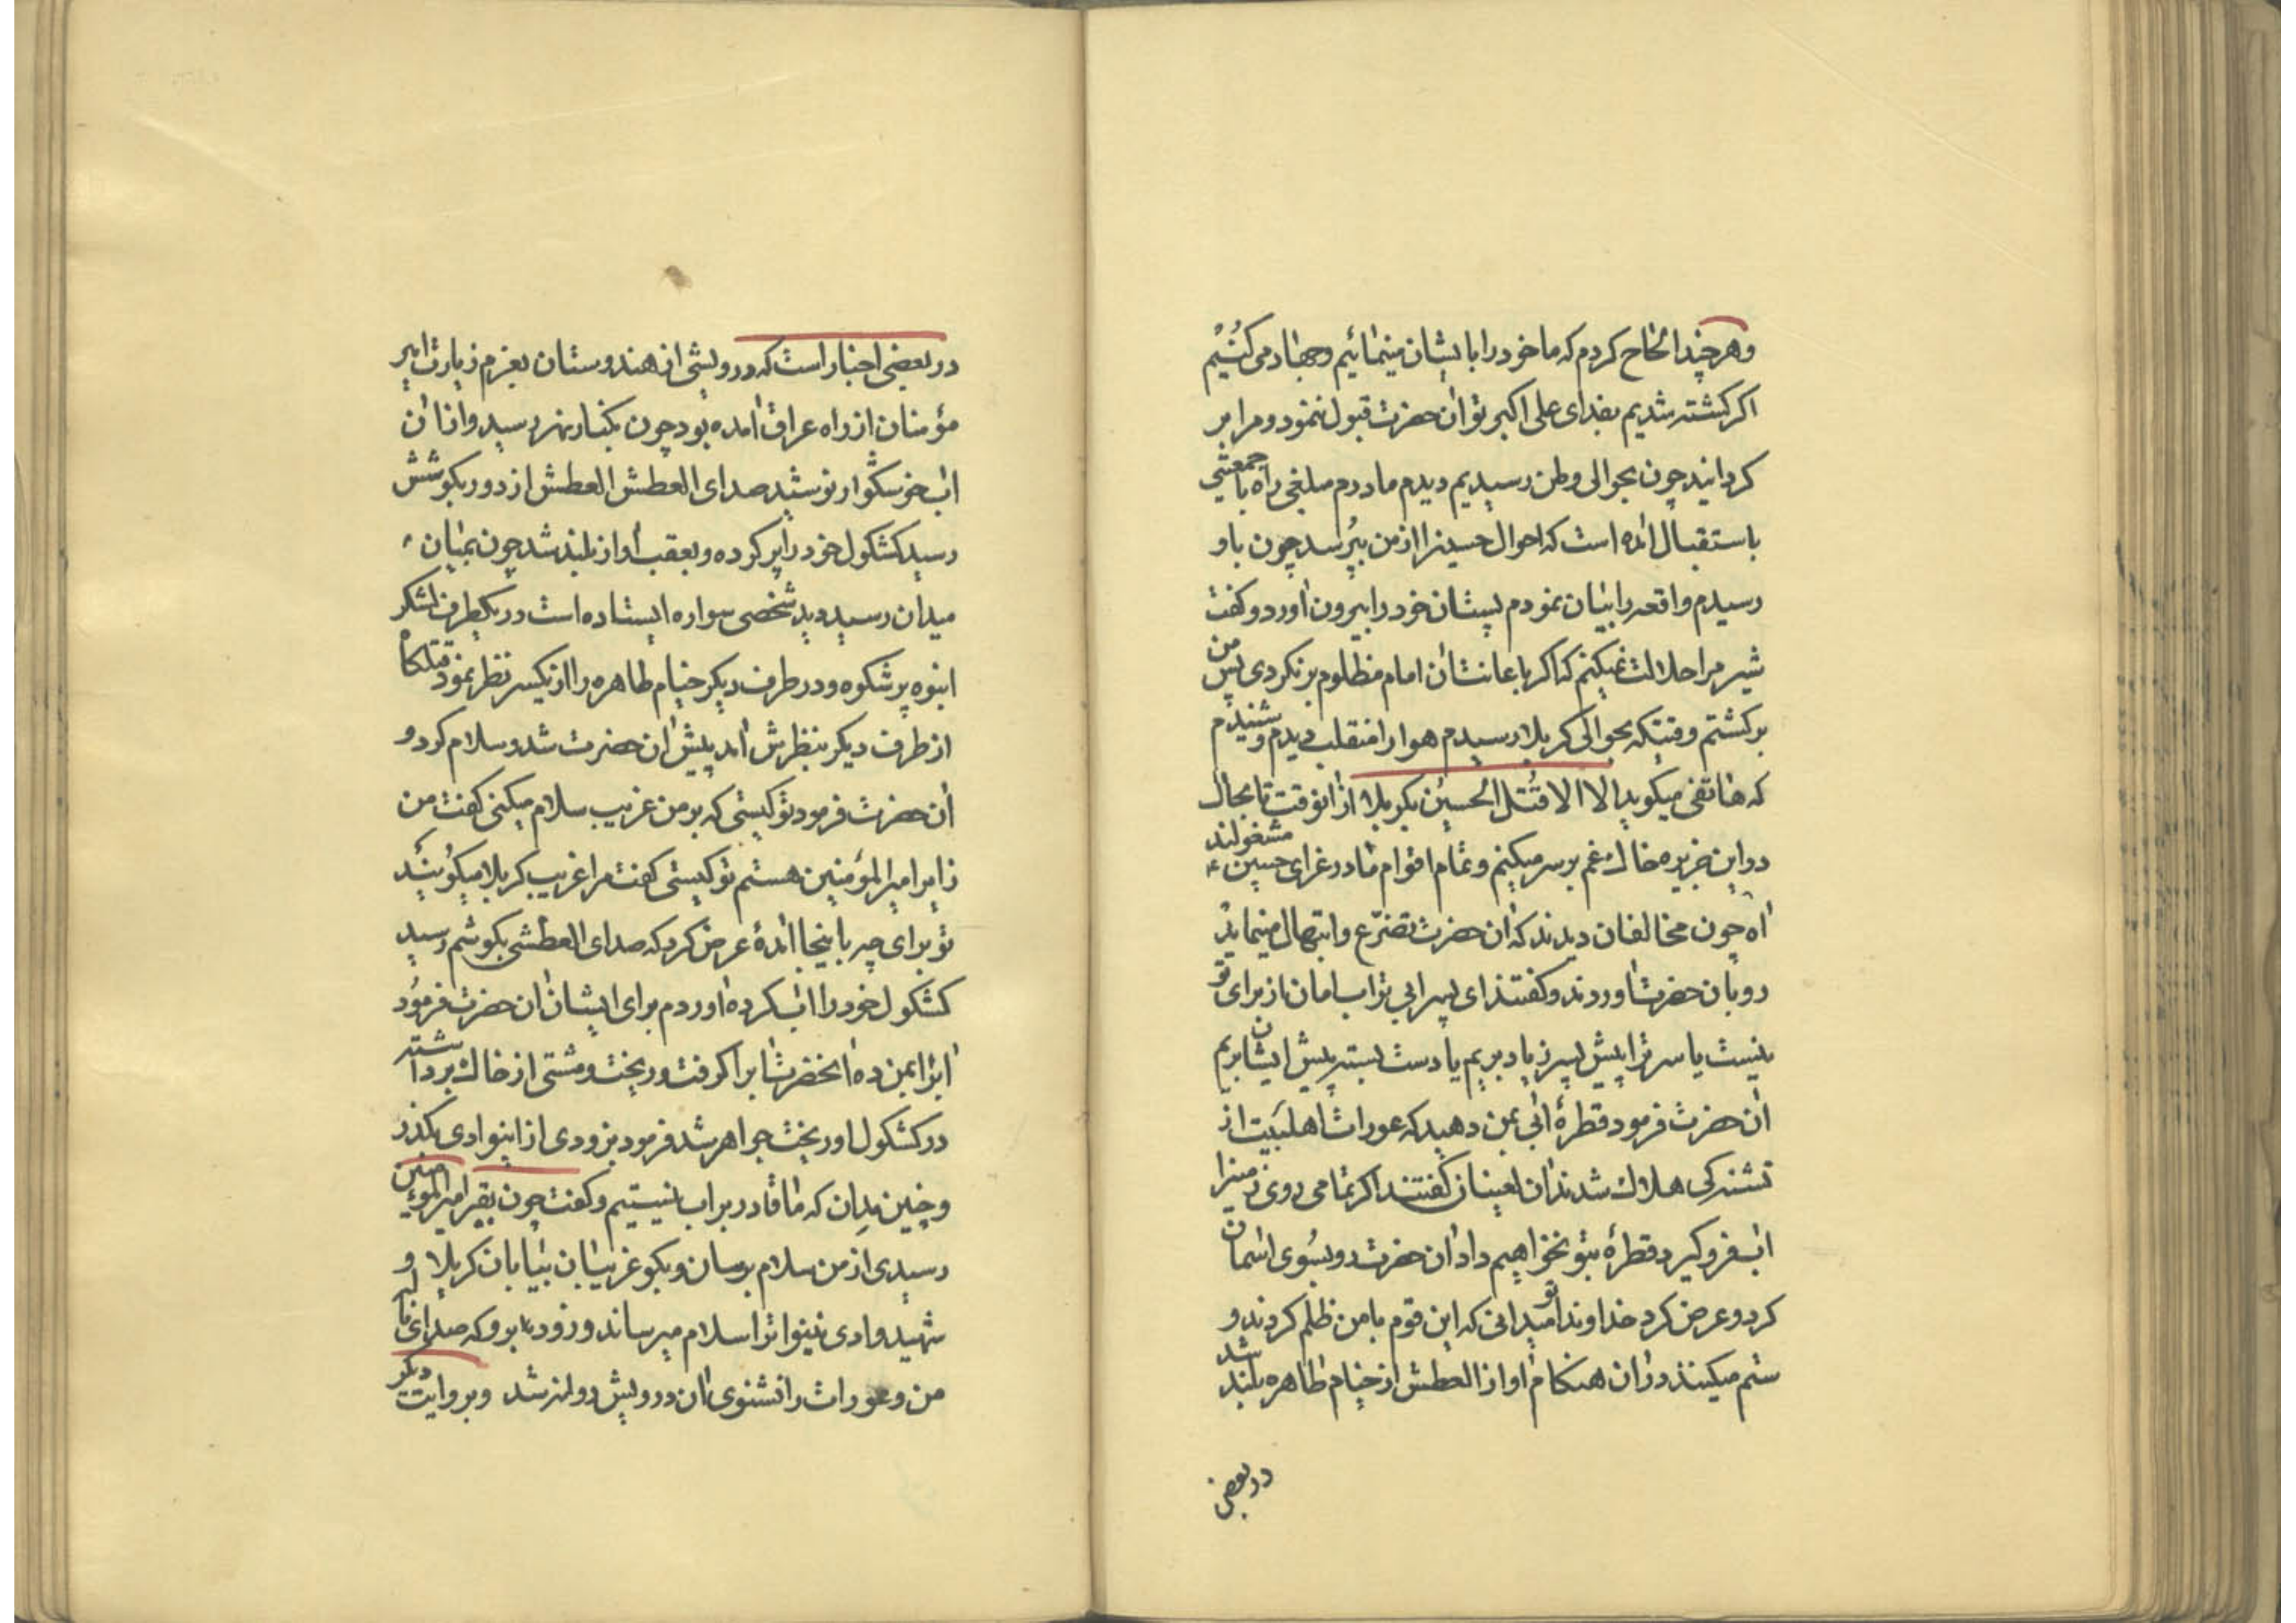 وهر چند الحاح کردم که ما خود را با ایشان مینمائیم وجهاد می کنیم
اکر کشته شدیم بفدای علی اکبر تو ان حضرت قبول ننمود و مرا بر
کردانید چون بحوالی وطن رسیدیم دیدم مادرم مبلغی راه با جمعیتی
باستقبال امده است که احوال حسینرا از من بپرسد چون باو
رسیدم واقعه را بیان نمودم پستان خود را بیرون اورد و کفت
شیر مرا حلالت نمیکنم که اکر باعانت ان امام مظلوم برنکردی پس من
برکشتم وقتیکه بحوالی کربلا رسیدم هوا را منقلب دیدم و شنیدم
که هاتفی میکوید الا الا قتل الحسین بکربلا از انوقت تا بحال
در این جزیره خاک غم بر سر میکنم و تمام اقوام ما در عزای حسین ع مشغولند
اه چون مخالفان دیدند که ان حضرت تضرع وابتهال مینماید
رو بان حضرت اوردند و کفتند ای پسر ابی تراب امان از برای تو
نیست یا سر ترا پیش پسر زیاد بریم یا دست بسته پیش ایشان بریم
ان حضرت فرمود قطرۀ ابی بمن دهید که عورات اهلبیت از
تشنه کی هلاک شدند ان لعینان کفتند اکر تمامی روی زمینرا
اب فرو کیرد قطرۀ بتو نخواهیم داد ان حضرت رو بسوی اسمان
کرد و عرض کرد خداوندا تو میدانی که این قوم با من ظلم کردند و
ستم میکنند در ان هنکام اواز العطش از خیام طاهره بلند شد
در بعضی
در بعضی اخبار است که درویشی از هندوستان بعزم زیارت امیر
مؤمنان از راه عراق امده بود چون بکنار نهر رسید و از ان
اب خوشکوار نوشید صدای العطش العطش از دور بکوشش
رسید کشکول خود را پر کرده و بعقب اواز بلند شد چون بمیان
میدان رسید دید شخصی سواره ایستاده است در یکطرف لشکر
انبوه پر شکوه و در طرف دیکر خیام طاهره را از یکسر نظر نمود قتلکاه
از طرف دیکر بنظرش امد پیش ان حضرت شد و سلام کرد و
ان حضرت فرمود تو کیستی که بر من غریب سلام میکنی کفت من
زایر امیر المؤمنین هستم تو کیستی کفت مرا غریب کربلا میکویند
تو برای چه باینجا امدۀ عرض کرد که صدای العطشی بکوشم رسید
کشکول خود را اب کرده اوردم برای ایشان ان حضرت فرمود
اب را بمن ده انحضرت اب را کرفت و ریخت و مشتی از خاک برداشته
در کشکول او ریخت جواهر شد فرمود بزودی از اینوادی بکذر
و چنین مدان که ما قادر بر اب نیستیم و کفت چون بقبر امیر المؤمنین
رسیدی از من سلام برسان و بکو غریبان بیابان کربلا و
شهید وادی نینوا ترا سلام میرساند و زود برو که صدای ناله
من و عورات را نشنوی ان درویش روانه شد وبروایت دیکر